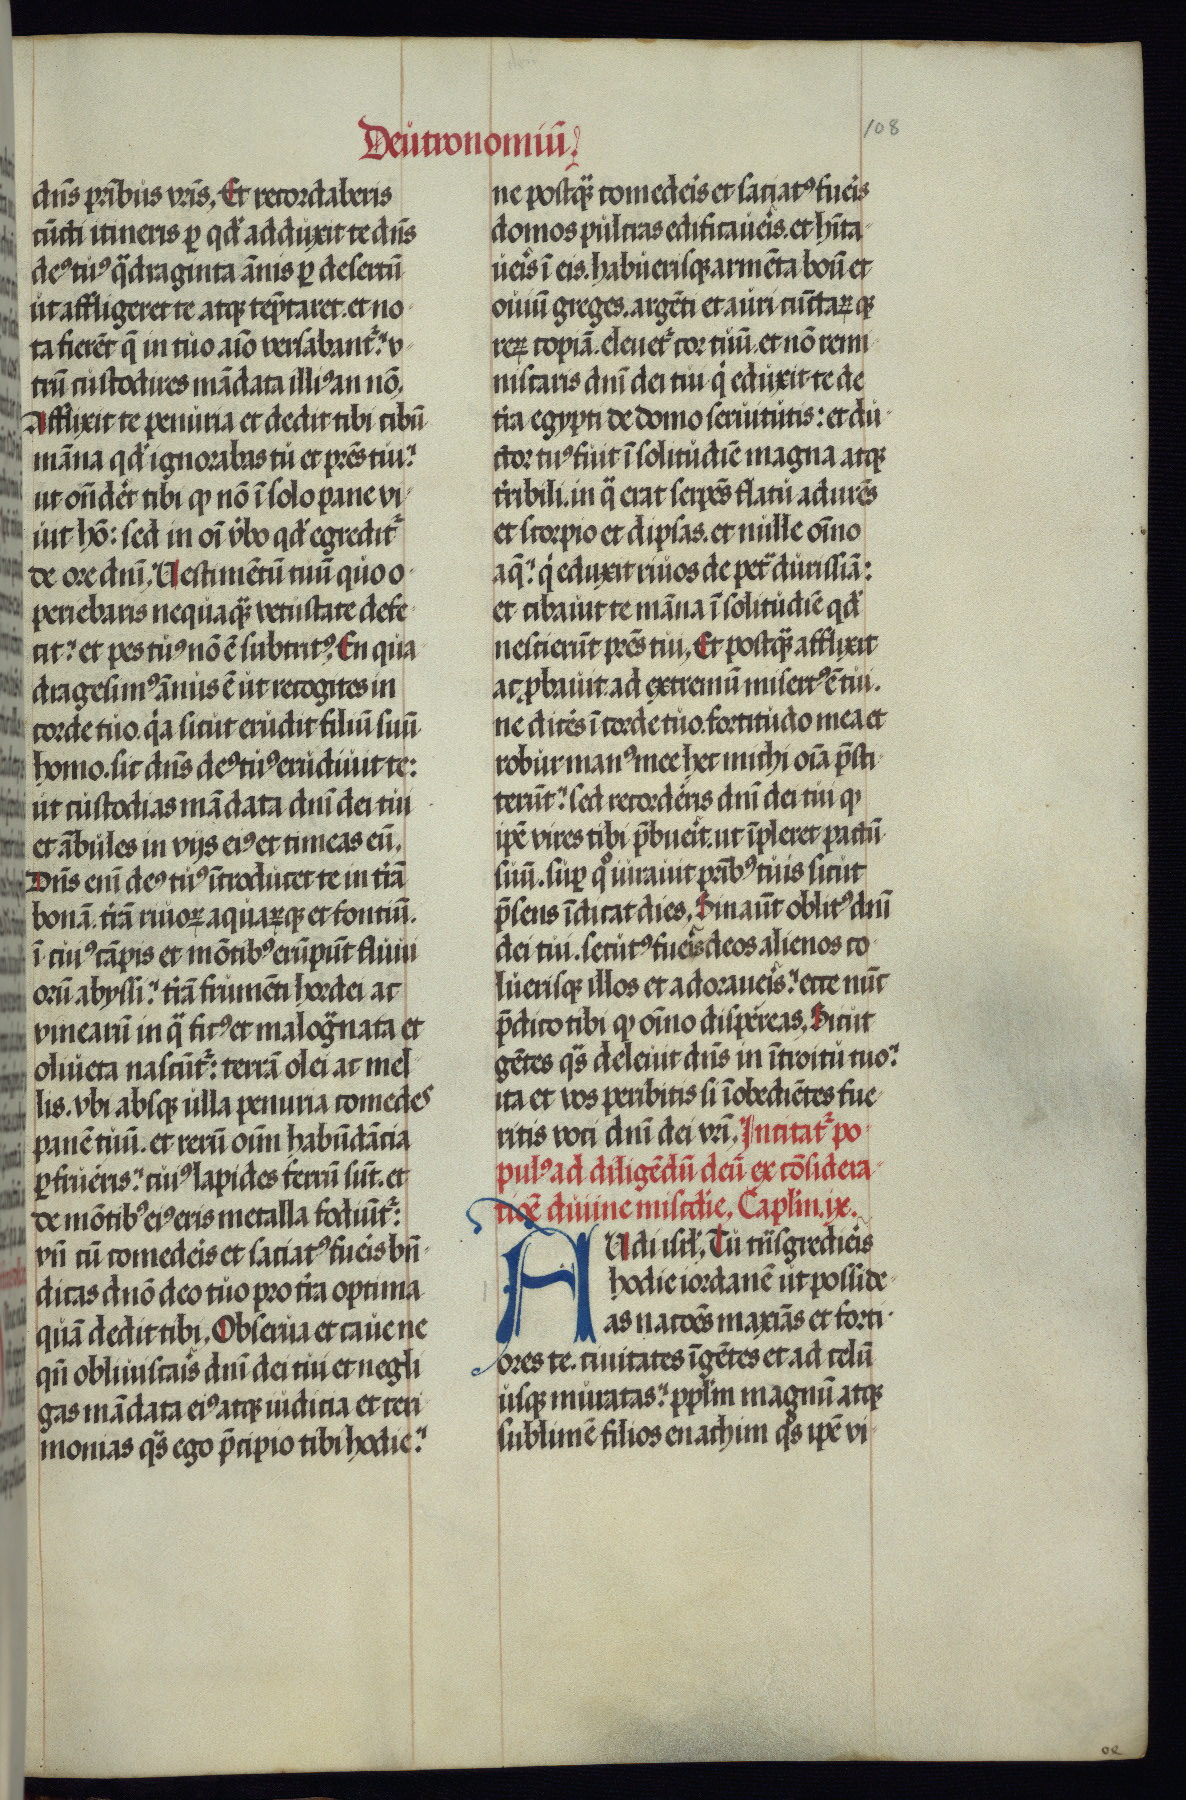 Deutronomiū
108
dn̄s pr̄ibus vr̄is. Et recordaberis
cūcti itineris ꝑ qd' adduxit te dn̄s
deꝰ tuꝰ q̈draginta ānis ꝑ desertū
ut affligeret te atqꝫ tēptaret. et no
ta fierēt q̄ in tuo aīo versabant᷑. v
trū custodires mādata illiꝰ an nō.
Afflixit te penuria et dedit tibi cibū
māna qd' ignorabas tu et pr̄es tui.
ut on̄dēt tibi ꝙ nō ī solo pane vi
uit hō: sed in oī v̓bo qd' egredit᷑
de ore dnī. Vestimētū tuū quo o
periebaris nequaq̈ꝫ vetustate defe
cit. et pes tuꝰ nō ē subtritꝰ. En qua
dragesimꝰ ānus ē ut recogites in
corde tuo. q̓a sicut erudit filiū suū
homo. sic dn̄s deꝰ tuꝰ erudiuit te:
ut custodias mādata dnī dei tui
et ābules in vijs eiꝰ et timeas eū.
Dn̄s enī deꝰ tuꝰ ītroducet te in tr̄ā
bonā. tr̄ā riuoꝝ aquaꝝqꝫ et fontiū.
ī cuiꝰ cāpis et mōtibꝰ erūpūt fluui
orū abyssi. tr̄ā frumēti hordei ac
vinearū in q̈ ficꝰ et malogr̈nata et
oliueta nascūt᷑: terrā olei ac mel
lis. vbi absqꝫ ulla penuria comedes
panē tuū. et rerū oīm habūdācia
ꝑfrueris. cuiꝰ lapides ferrū sūt. et
de mōtibꝰ eiꝰ eris metalla fodiūt᷑:
vn̄ cū comedeis et saciatꝰ fueis bn̄
dicas dnō deo tuo pro tr̄a optima
quā dedit tibi. Obserua et caue ne
qn̄ obliuiscais dnī dei tui et negli
gas mādata eiꝰ atqꝫ iudicia et ceri
monias q̈s ego p̄cipio tibi hodie.
ne postq̈ꝫ comedeis et saciatꝰ fueis
domos pulcras edificaueis. et hīta
ueis ī eis. habuerisqꝫ armēta boū et
ouiū greges. argēti et auri cūctaꝝqꝫ
reꝝ copiā. eleuet᷑ cor tuū. et nō remi
niscaris dnī dei tui q̓ eduxit te de
tr̄a egypti de domo seruitutis: et du
ctor tuꝰ fuit ī solitudīe magna atqꝫ
tr̄ibili. in q̈ erat serpēs flatu adurēs
et scorpio et dipsas. et nulle oīno
aq̄. q̓ eduxit riuos de pet̄ durissīā:
et cibauit te māna ī solitudīe qd'
nescierūt pr̄es tui. Et postq̈ꝫ afflixit
ac ꝓbauit. ad extremū misertꝰ ē tui.
ne dicēs ī corde tuo. fortitudo mea et
robur manꝰ mee hec michi oīa p̄sti
terūt. sed recordēris dnī dei tui ꝙ
ipē vires tibi p̄bueit. ut īpleret pactū
suū. suꝑ qͦ iurauit pr̄ibꝰ tuis sicut
p̄sens īdicat dies. Sin aūt oblitꝰ dnī
dei tui. secutꝰ fueis deos alienos co
luerisqꝫ illos et adoraueis. ecce nūc
p̄dico tibi ꝙ oīno dispereas. Sicut
gētes q̈s deleuit dn̄s in ītroitu tuo.
ita et vos peribitis si īobediētes fue
ritis voci dnī dei vr̄i. Incitat᷑ po
pulꝰ ad diligēdū deū ex cōsidera
tiōe diuine misc̄die. Caplm̄. ix.
AUdi isrl̄. Tu trn̄sgredieis
hodie iordanē ut posside
as nacōes maxīas et forti
ores te. ciuitates īgētes et ad celū
usqꝫ muratas. ppl̄m magnū atqꝫ
sublimē filios enachim q̈s ipē vi